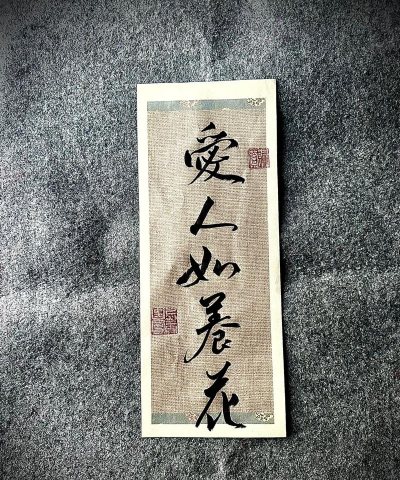 愛人如養花